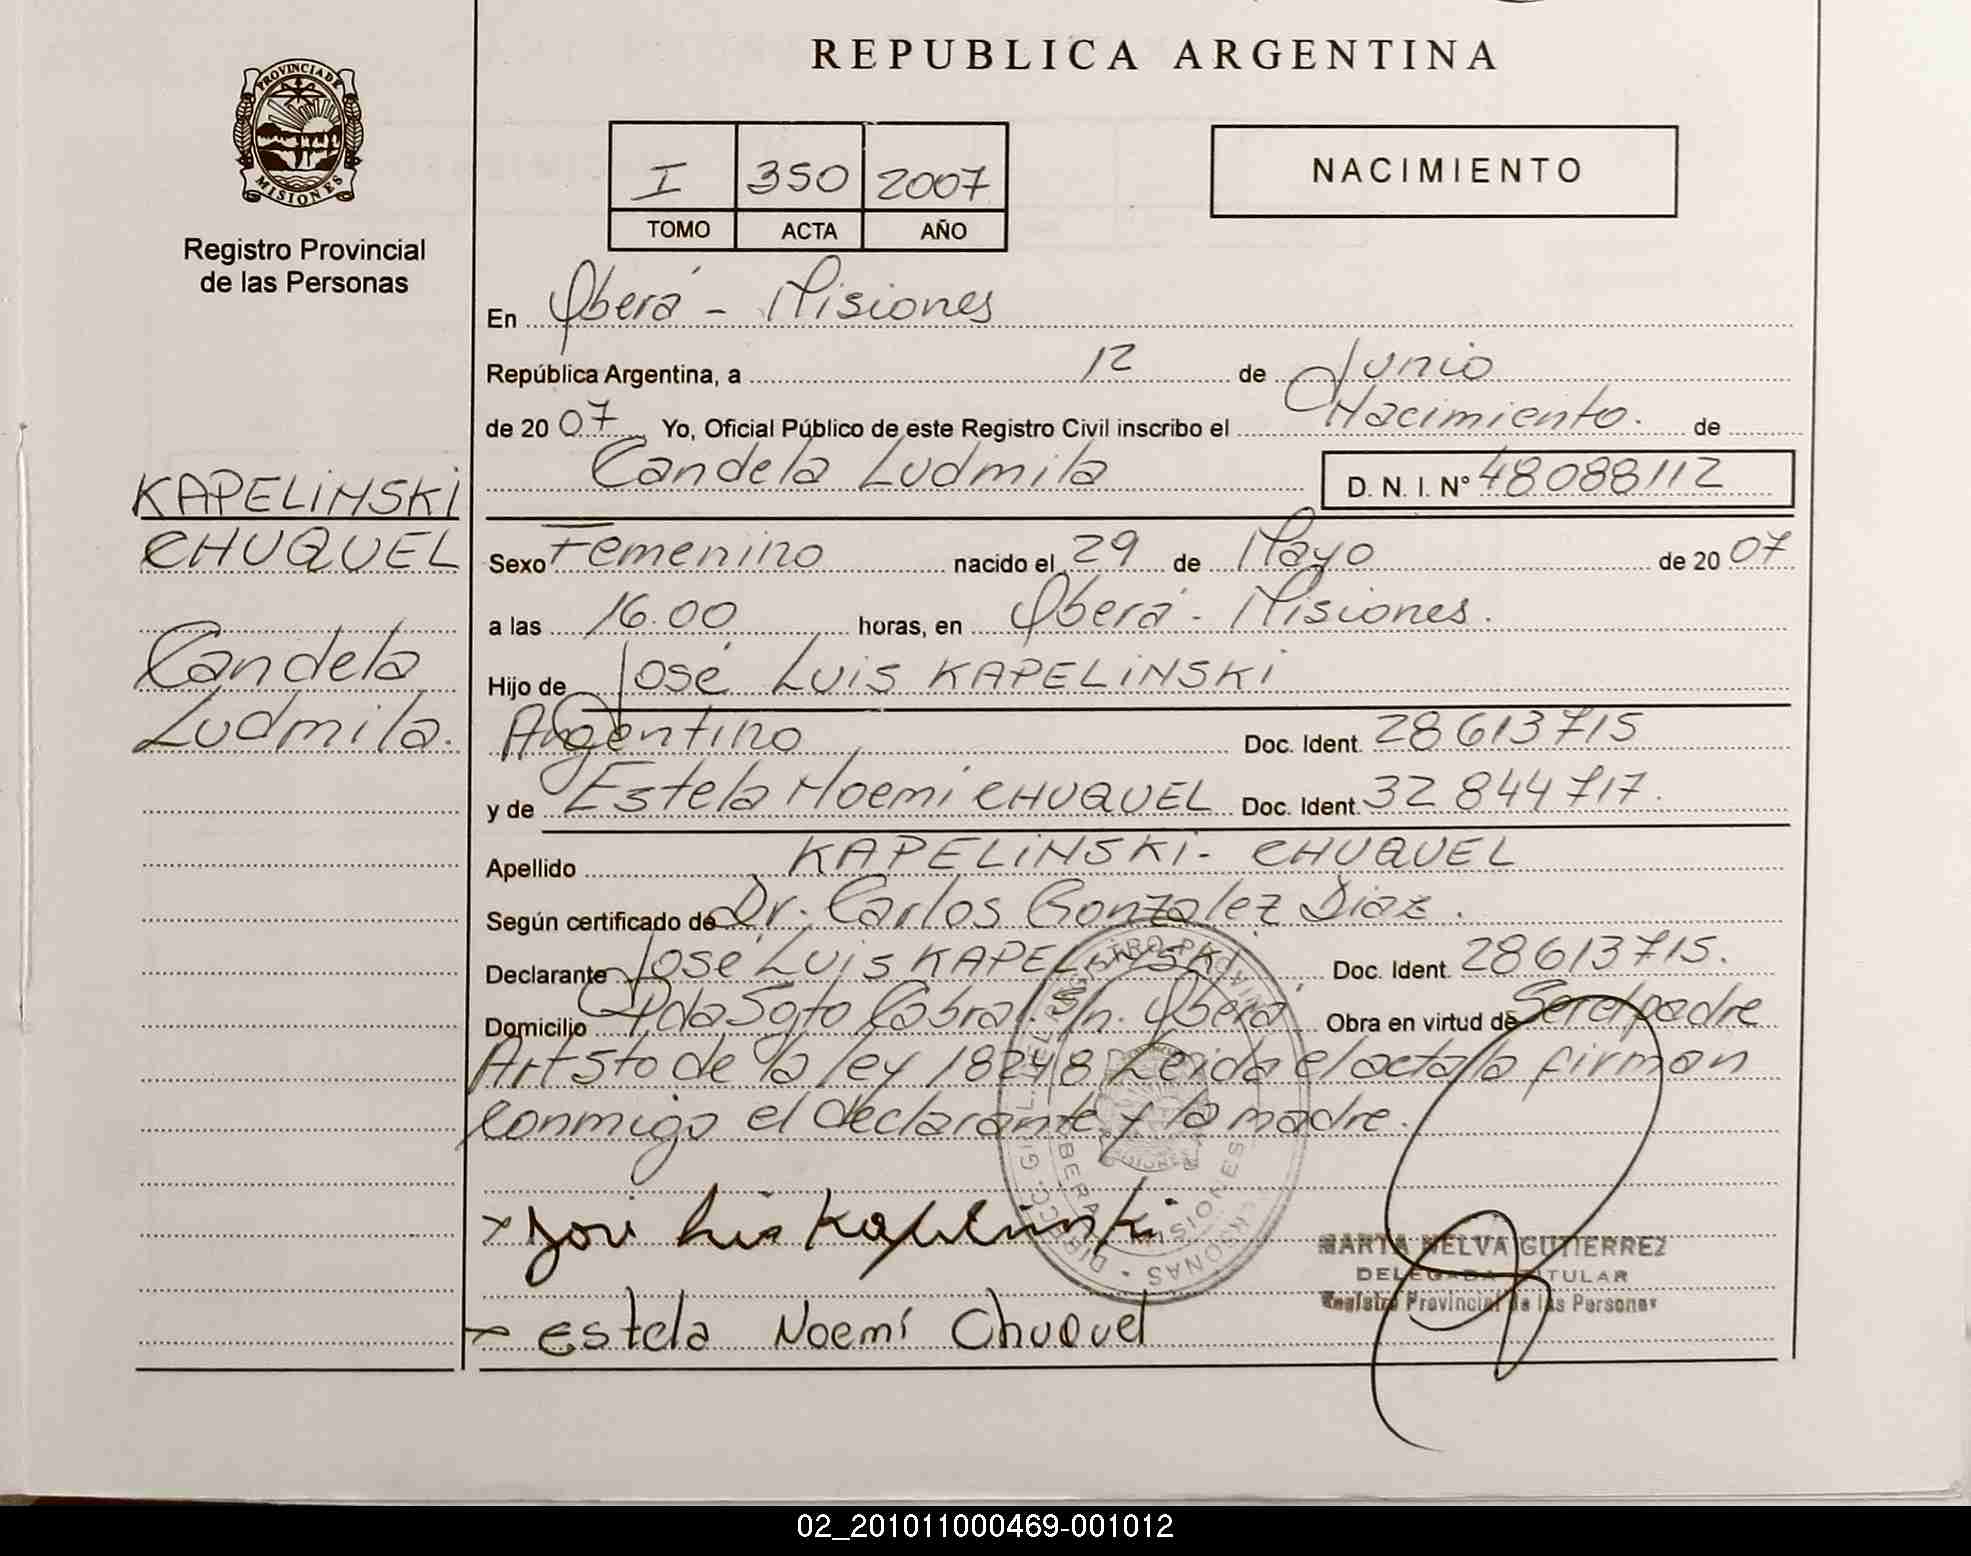 REPUBLICA ARGENTINA
PROVINCIA DE
MISIONES
Registro Provincial
de las Personas
I 350 2007
TOMO ACTA AÑO
NACIMIENTO
KAPELINSKI
CHUQUEL
Candela
Ludmila.
En Oberá - Misiones
República Argentina, a 12 de Junio
de 20 07 Yo, Oficial Público de este Registro Civil inscribo el Nacimiento. de
Candela Ludmila D. N. I. N° 48088112
Sexo Femenino nacido el 29 de Mayo de 20 07
a las 16.00 horas, en Oberá - Misiones.
Hijo de José Luis KAPELINSKI
Argentino Doc. Ident. 28613715
y de Estela Noemi CHUQUEL Doc. Ident. 32 844 717.
Apellido KAPELINSKI - CHUQUEL
Según certificado de Dr. Carlos Gonzalez Diaz.
Declarante José Luis KAPELINSKI Doc. Ident. 28613715.
Domicilio Pda Sgto Cabral S/n. Oberá Obra en virtud de Ser el padre
Art 5to de la ley 18248 Leida el acta la firman
conmigo el declarante y la madre.
x José Luis Kapelinski
x Estela Noemí Chuquel
MARTA NELVA GUTIERREZ
DELEGADA TITULAR
Registro Provincial de las Personas
02_201011000469-001012